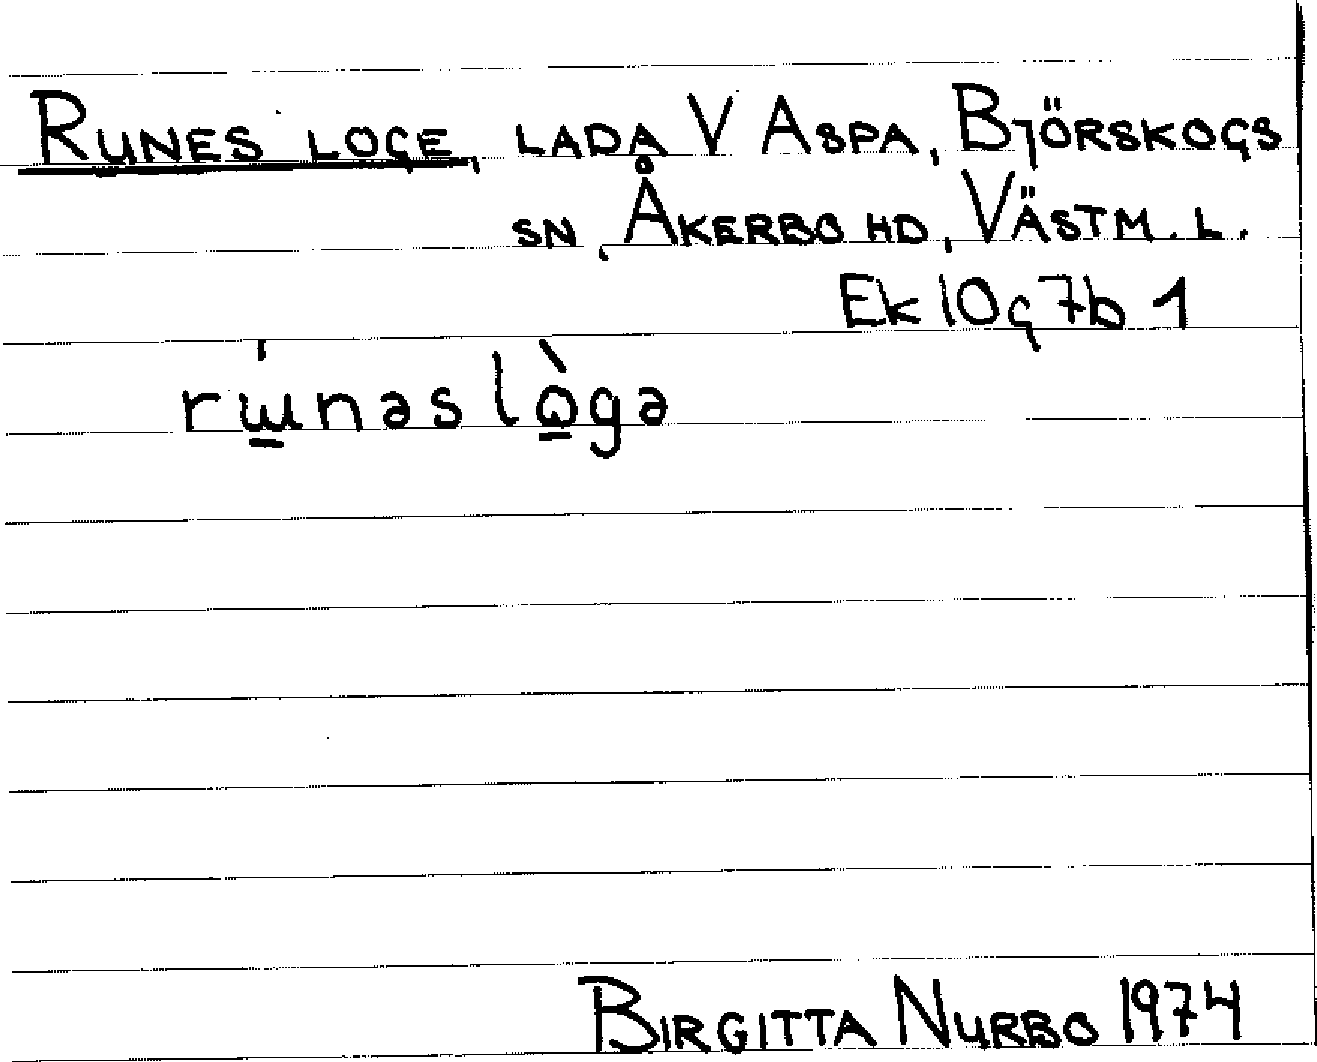 RUNES LOGE, LADA V ASPA, BJÖRSKOGS
SN, ÅKERBO HD, VÄSTM. L.
Ek 10g 7b 1
rɯ̲́nəs lò̲gə
BIRGITTA NURBO 1974